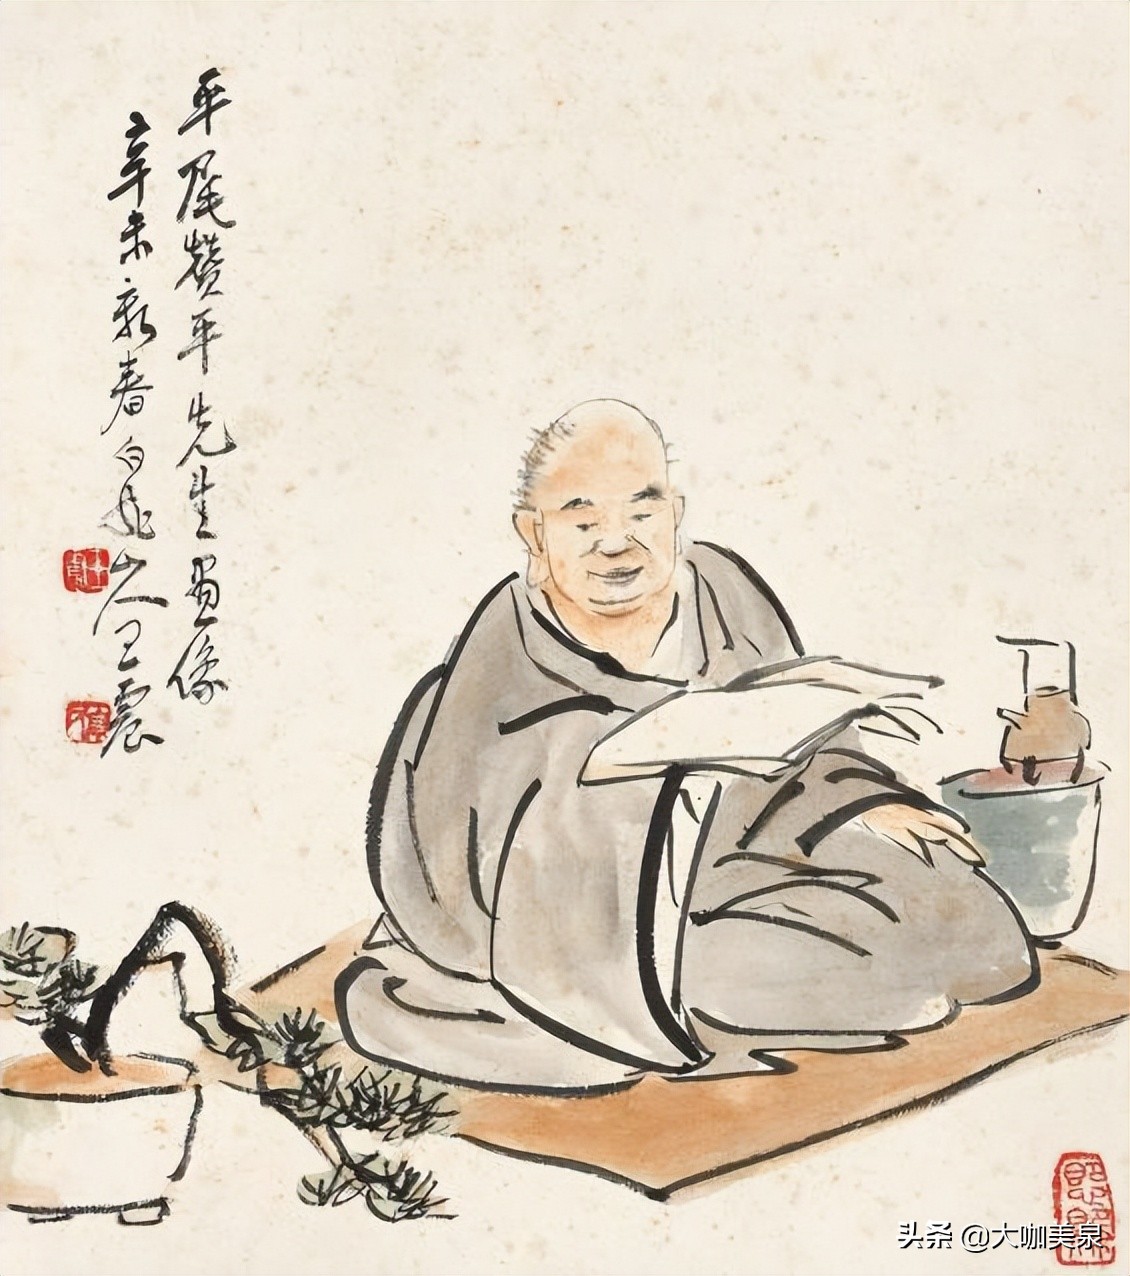 平尾贊平先生畫像
辛未新春白龍山人王震
头条 @大咖美泉